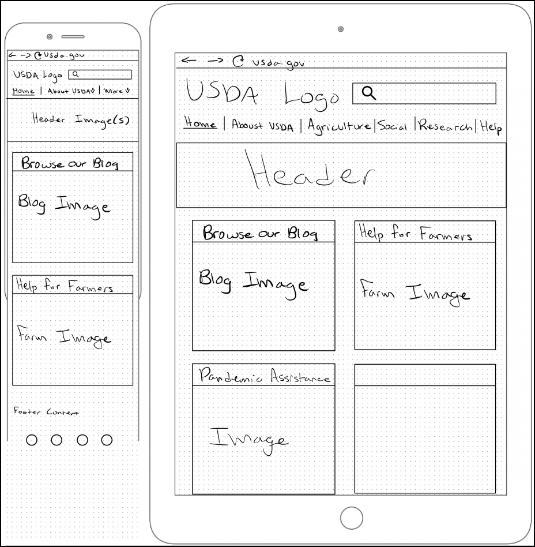 ← → usda.gov
USDA Logo
Home | About USDA | More
Header Image(s)
Browse our Blog
Blog Image
Help for Farmers
Farm Image
Footer Content
← → usda.gov
USDA Logo
Home | Aboust USDA | Agriculture | Social | Research | Help
Header
Browse our Blog
Help for Farmers
Blog Image
Farm Image
Pandemic Assistance
Image